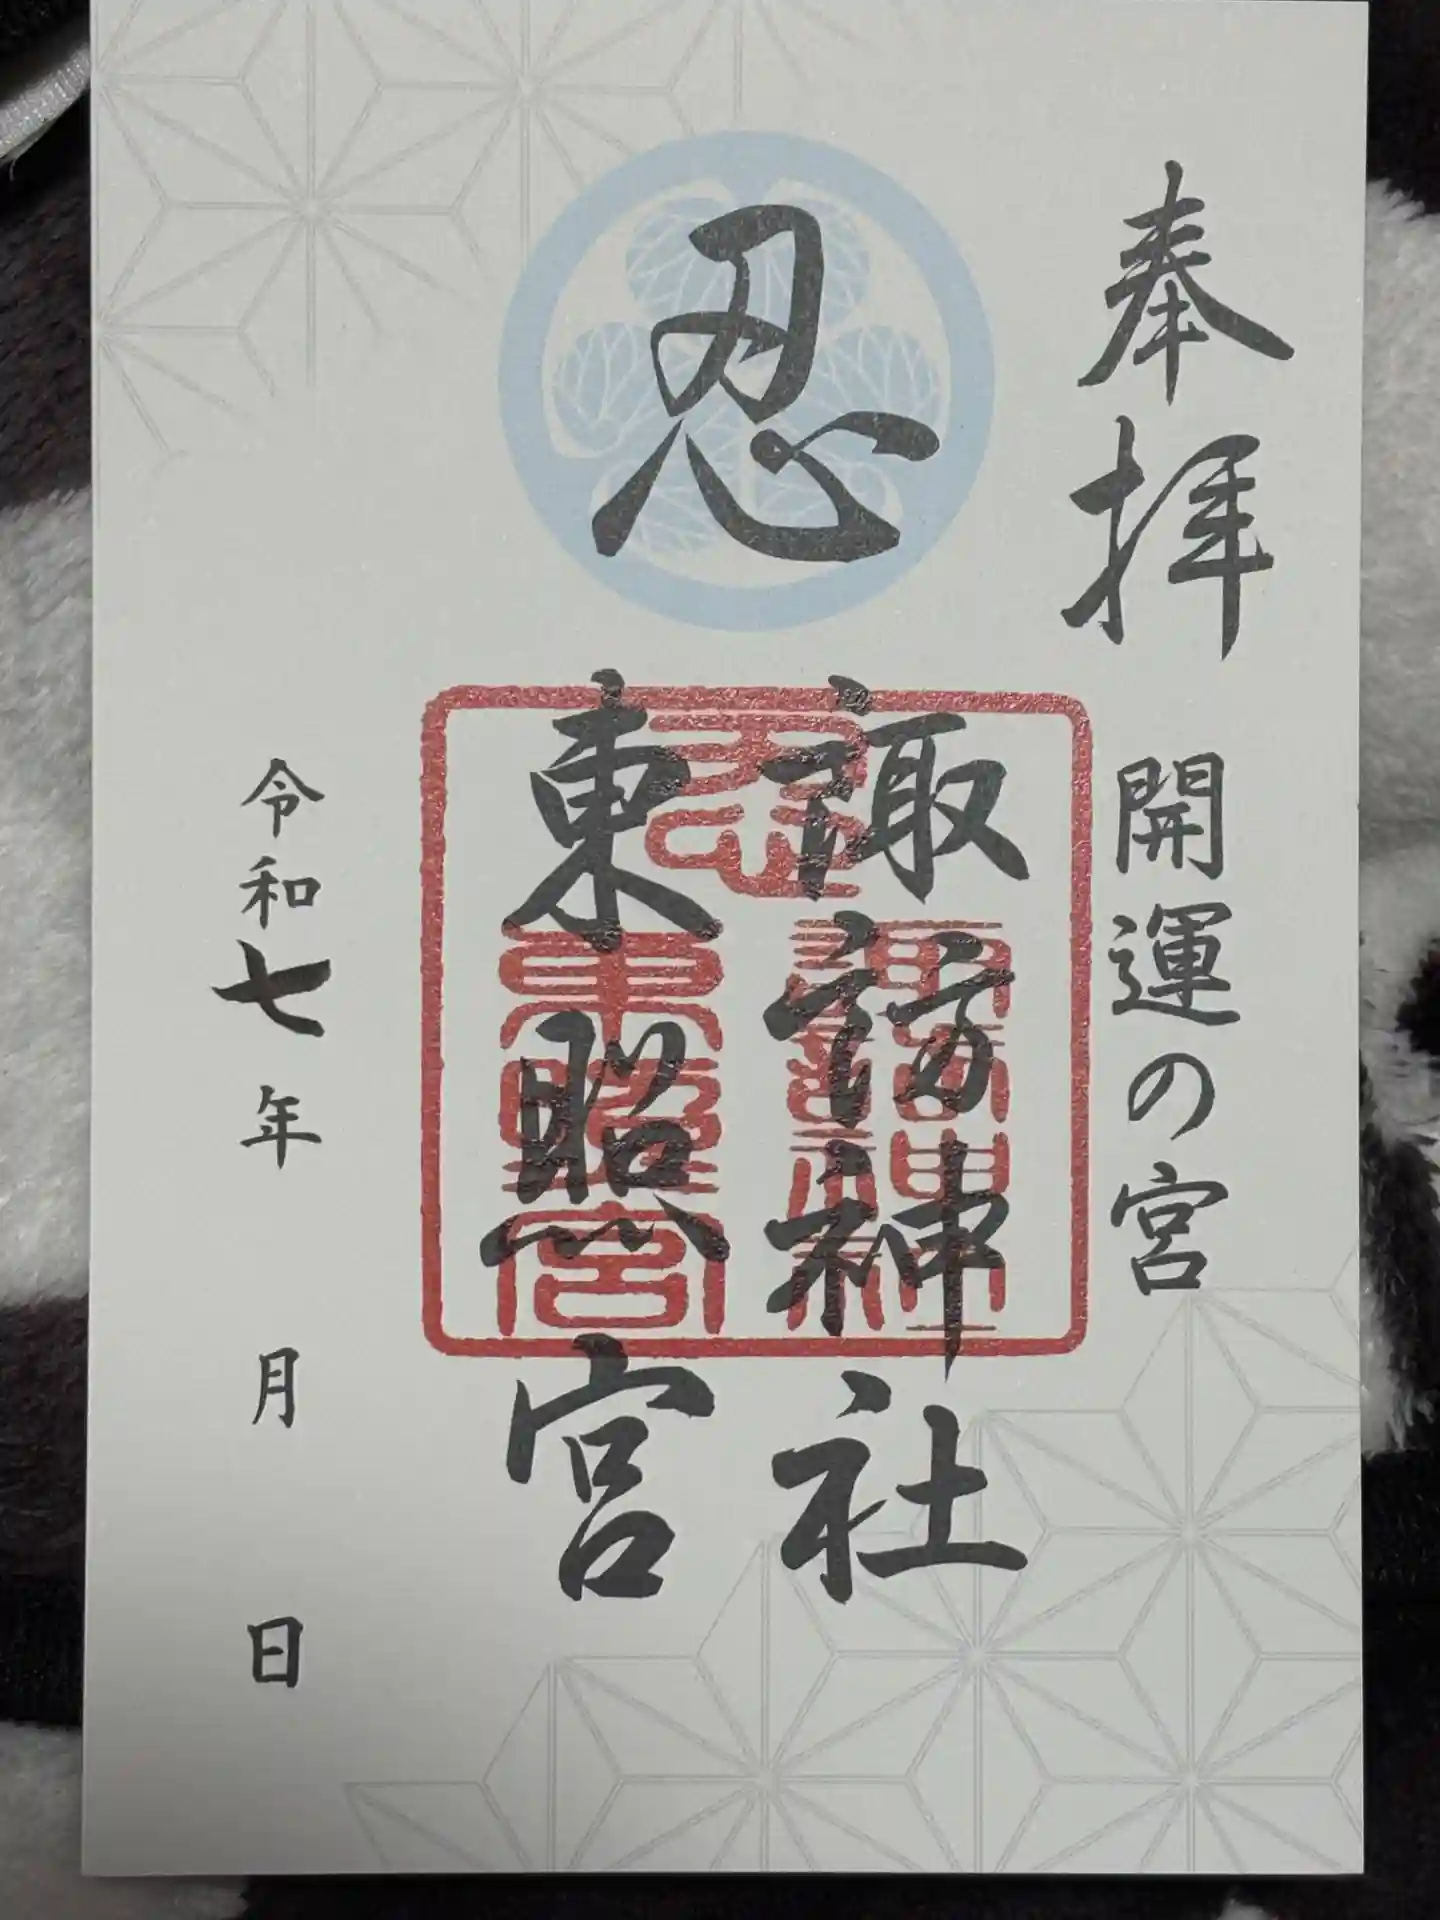 奉拝
開運の宮
忍
諏訪神社
東照宮
忍
諏訪神社
東照宮
令和七年 月 日